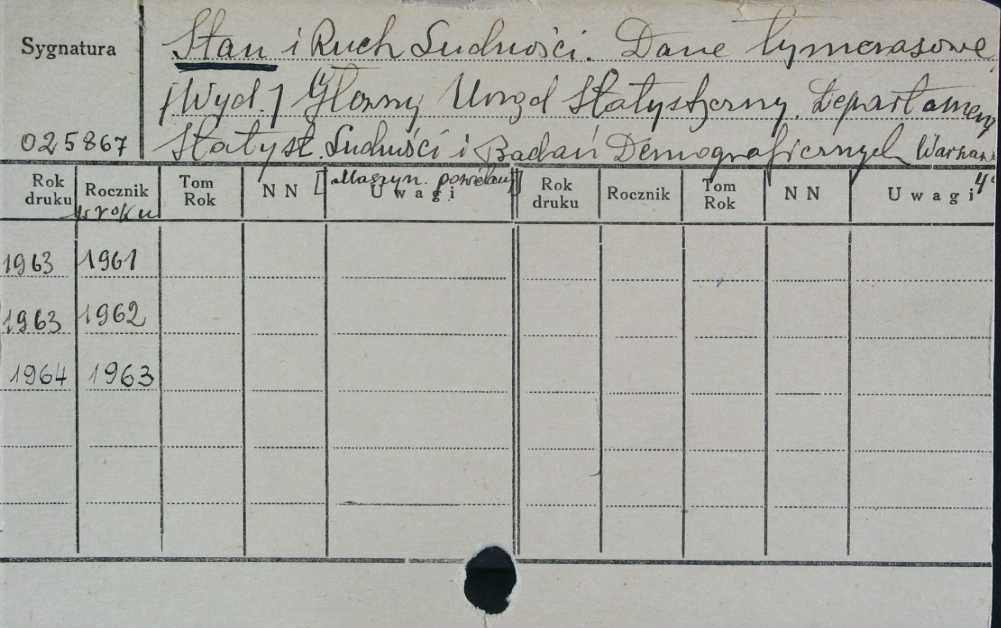 Sygnatura
Stan i Ruch Ludności. Dane tymczasowe
[Wyd.] Główny Urząd Statystyczny. Departament
025867 Statyst. Ludności i Badań Demograficznych Warszawa
[Maszyn. powielany] 4°
Rok druku Rocznik Tom Rok N N Uwagi Rok druku Rocznik Tom Rok N N Uwagi
w roku
1963 1961
1963 1962
1964 1963